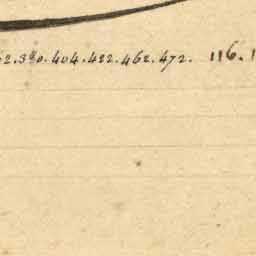 2.380.404.422.462.472. 116.1